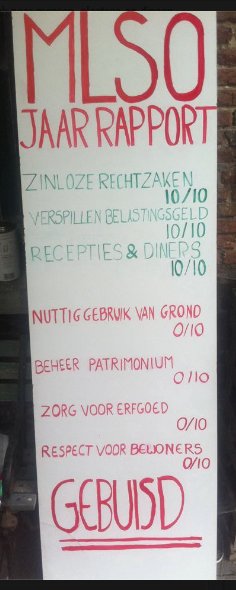 MLSO
JAAR RAPPORT
ZINLOZE RECHTZAKEN
10/10
VERSPILLEN BELASTINGSGELD
10/10
RECEPTIES & DINERS
10/10
NUTTIG GEBRUIK VAN GROND
0/10
BEHEER PATRIMONIUM
0/10
ZORG VOOR ERFGOED
0/10
RESPECT VOOR BEWONERS
0/10
GEBUISD